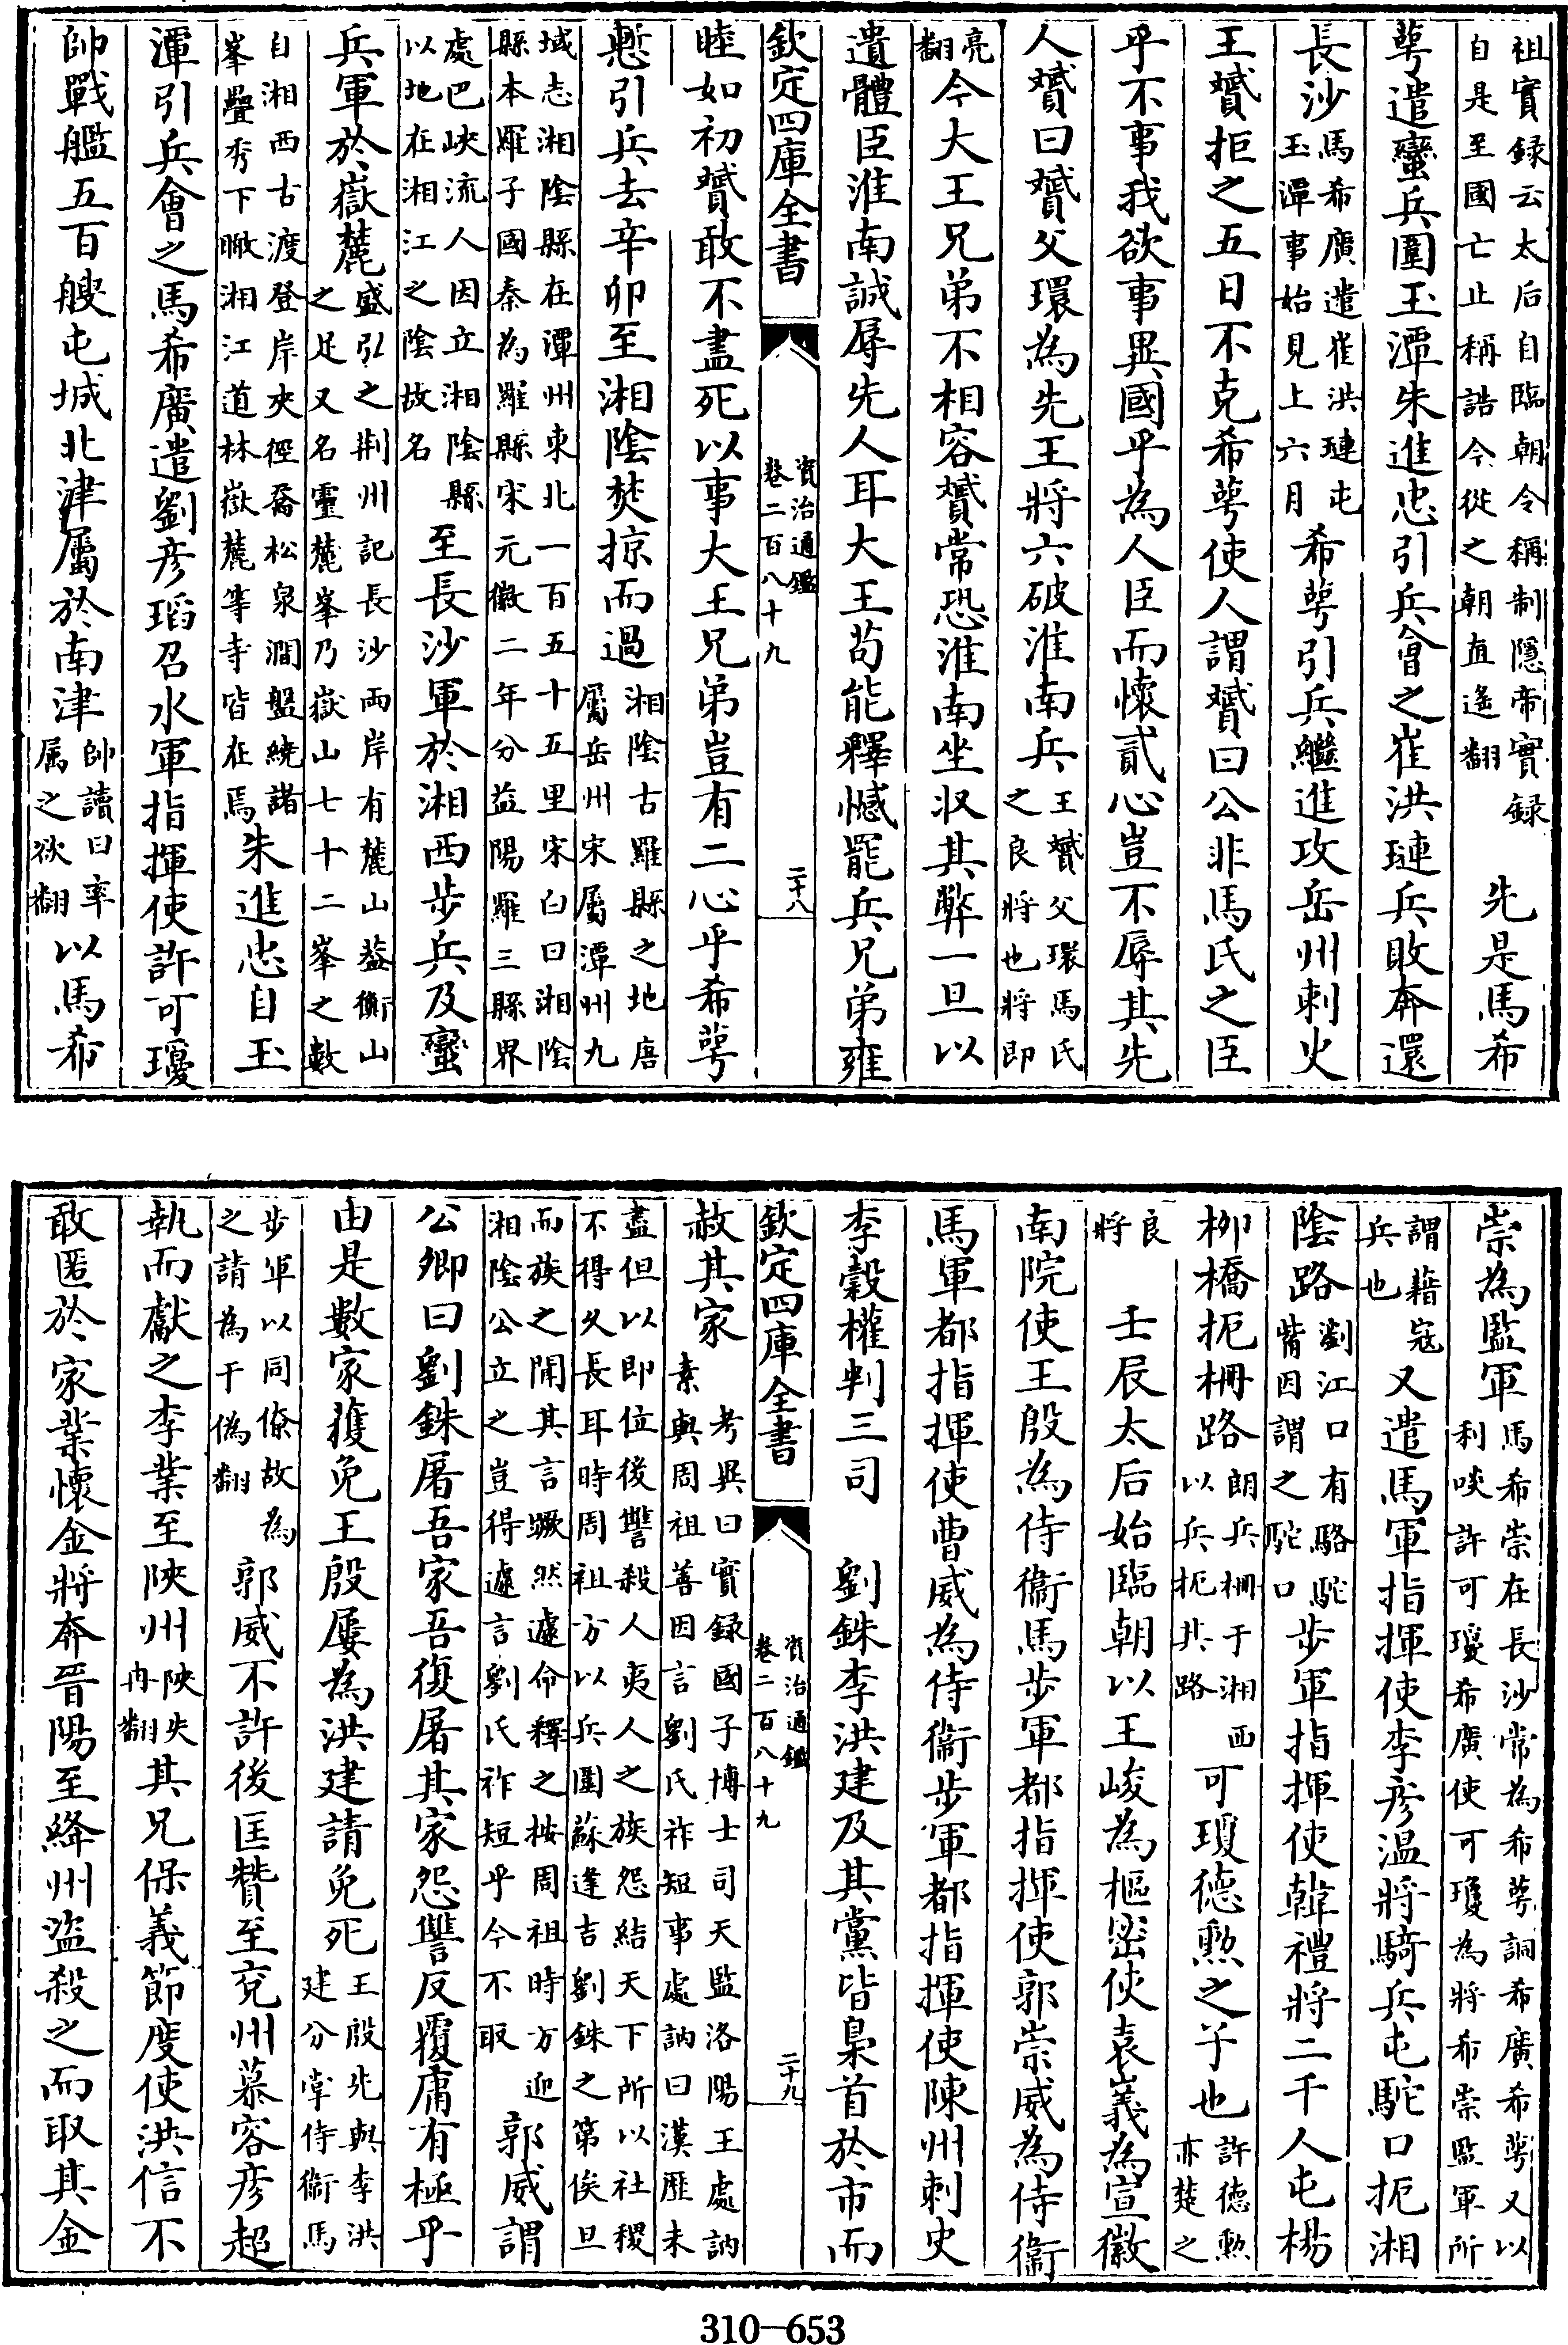 祖實録云太后自臨朝令稱制隱帝實録
自是至國亡止稱誥今從之朝直遙翻
先是馬希
萼遣蠻兵圍玉潭朱進忠引兵會之崔洪璉兵敗奔還
長沙
馬希廣遣崔洪璉屯
玉潭事始見上六月
希萼引兵繼進攻岳州刺史
王贇拒之五日不克希萼使人謂贇曰公非馬氏之臣
乎不事我欲事異國乎為人臣而懷貳心豈不辱其先
人贇曰贇父環為先王將六破淮南兵
王贇父環馬氏
之良將也將即
亮
翻
今大王兄弟不相容贇常恐淮南坐收其弊一旦以
遺體臣淮南誠辱先人耳大王茍能釋憾罷兵兄弟雍
欽定四庫全書
資治通鑑
卷二百八十九
二十八
睦如初贇敢不盡死以事大王兄弟豈有二心乎希萼
慙引兵去辛卯至湘陰焚掠而過
湘陰古羅縣之地唐
屬岳州宋屬潭州九
域志湘陰縣在潭州東北一百五十五里宋白曰湘陰
縣本羅子國秦為羅縣宋元徽二年分益陽羅三縣界
處巴峽流人因立湘陰縣
以地在湘江之陰故名
至長沙軍於湘西步兵及蠻
兵軍於嶽麓
盛弘之荆州記長沙兩岸有麓山蓋衡山
之足又名靈麓峯乃嶽山七十二峯之數
自湘西古渡登岸夾徑喬松泉澗盤繞諸
峯疊秀下瞰湘江道林嶽麓等寺皆在焉
朱進忠自玉
潭引兵會之馬希廣遣劉彦瑫召水軍指揮使許可瓊
帥戰艦五百艘屯城北津屬於南津
帥讀曰率
属之欲翻
以馬希
崇為監軍
馬希崇在長沙常為希萼詗希廣希萼又以
利啖許可瓊希廣使可瓊為將希崇監軍所
謂藉寇
兵也
又遣馬軍指揮使李彦温將騎兵屯駝口扼湘
陰路
瀏江口有駱駝
觜因謂之駝口
步軍指揮使韓禮將二千人屯楊
柳橋扼柵路
朗兵柵于湘西
以兵扼其路
可瓊德勲之子也
許德勲
亦楚之
良
將
壬辰太后始臨朝以王峻為樞密使袁㠖為宣徽
南院使王殷為侍衞馬步軍都指揮使郭崇威為侍衞
馬軍都指揮使曹威為侍衞步軍都指揮使陳州刺史
李穀權判三司
劉銖李洪建及其黨皆梟首於市而
欽定四庫全書
資治通鑑
卷二百八十九
二十九
赦其家
考異曰實録國子博士司天監洛陽王處訥
素與周祖善因言劉氏祚短事處訥曰漢厯未
盡但以即位後讐殺人夷人之族怨結天下所以社稷
不得久長耳時周祖方以兵圍蘇逢吉劉銖之第俟旦
而族之聞其言蹶然遽命釋之按周祖時方迎
湘陰公立之豈得遽言劉氏祚短乎今不取
郭威謂
公卿曰劉銖屠吾家吾復屠其家怨讐反覆庸有極乎
由是數家獲免王殷屢為洪建請免死
王殷先與李洪
建分掌侍衞馬
步軍以同僚故為
之請為于偽翻
郭威不許後匡贊至兖州慕容彦超
執而獻之李業至陝州
陝失
冉翻
其兄保義節度使洪信不
敢匿於家業懷金將奔晉陽至絳州盜殺之而取其金
310—653